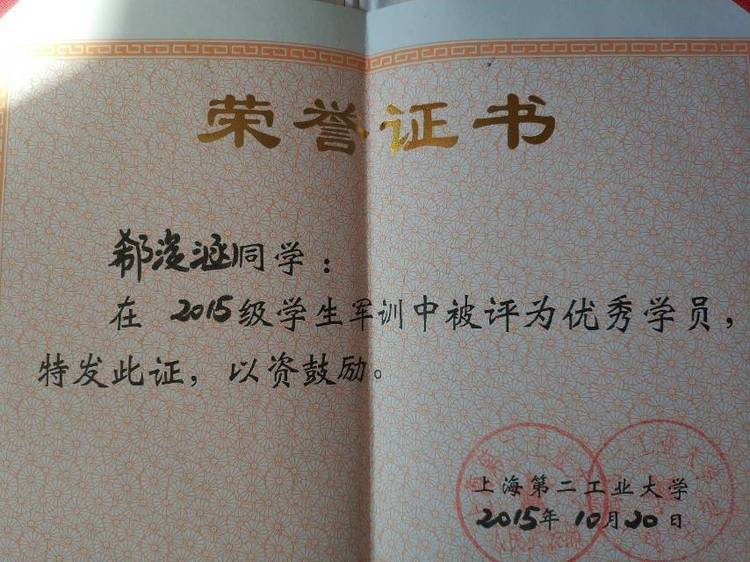 荣誉证书
郗浚涵同学：
在2015级学生军训中被评为优秀学员，
特发此证，以资鼓励。
上海第二工业大学
2015年10月20日
人民武装部